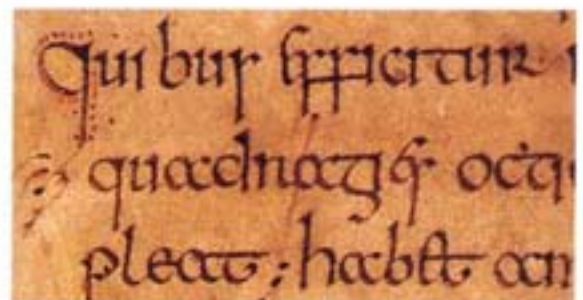 Quibus efficitur
quadrages octi
pleat; habet an